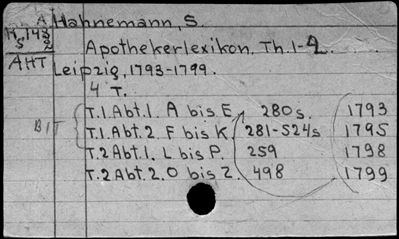 A Hahnemann, S.
K, 143
S 2 Apothekerlexikon. Th.1-2
AHT Leipzig, 1793-1799.
4 T.
T.1 Abt.1. A bis E 280s. 1793
BIT T.1 Abt.2. F bis K. 281-524s 1795
T.2 Abt.1. L bis P. 259 1798
T.2 Abt.2. O bis Z. 498 1799